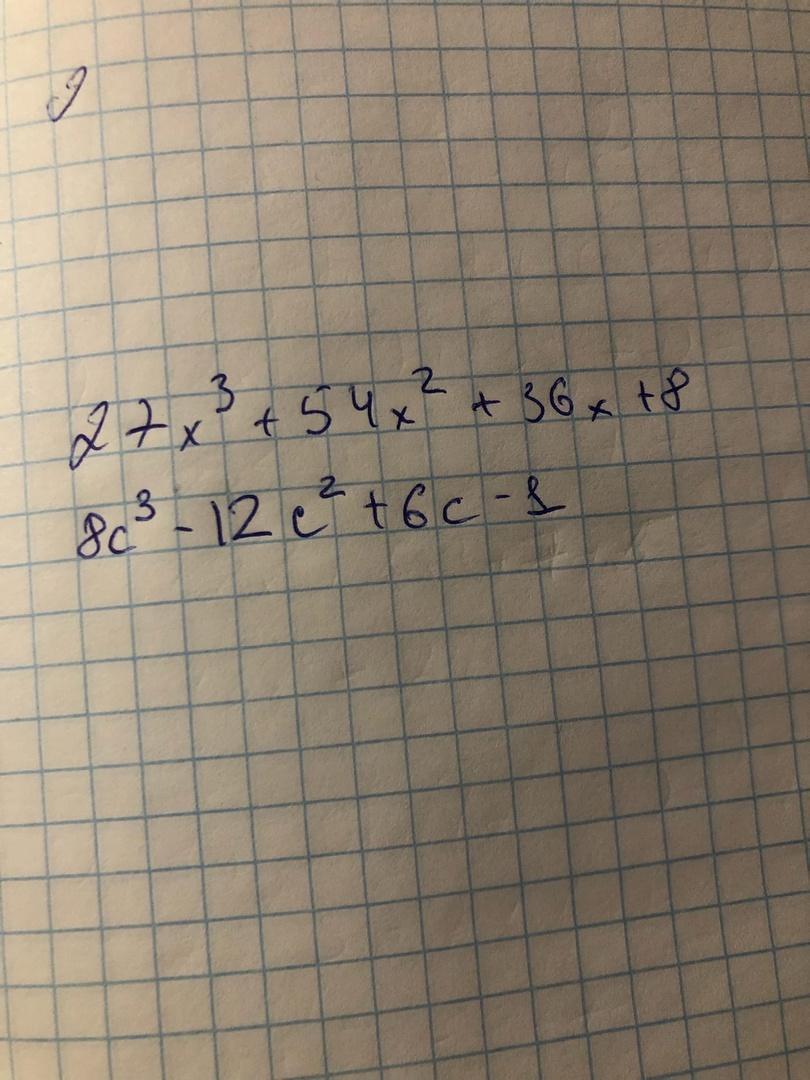 27x³ + 54x² + 36x + 8
8c³ - 12c² + 6c - 1